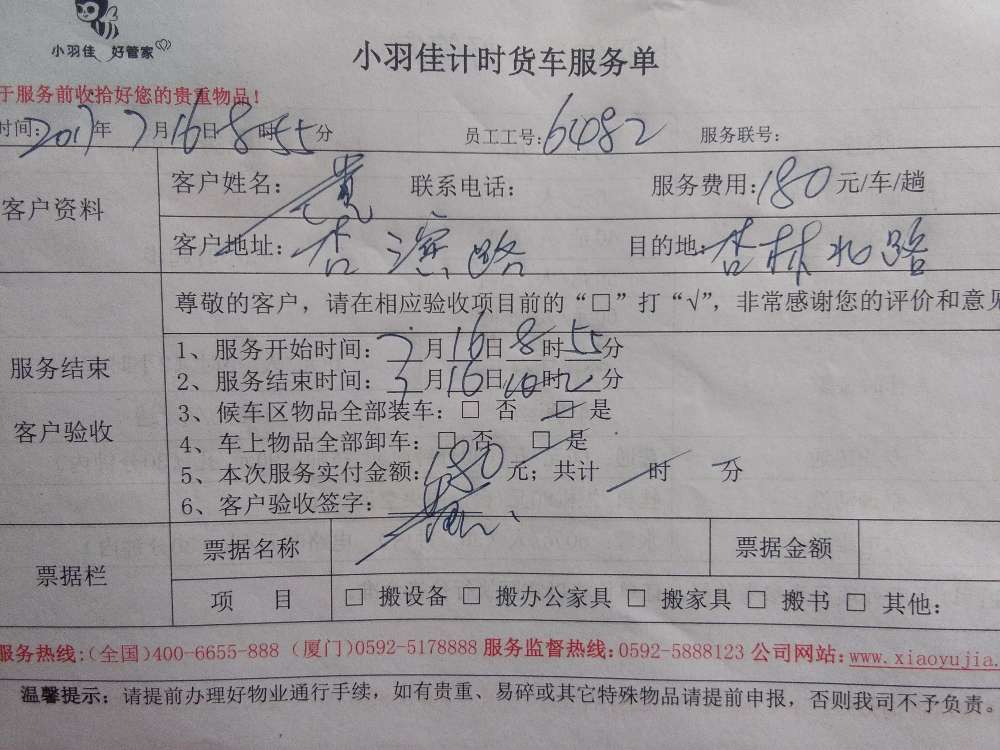 小羽佳 好管家
小羽佳计时货车服务单
于服务前收拾好您的贵重物品!
时间:2017年7月16日8时55分 员工工号:6482 服务联号:
客户资料
客户姓名: 联系电话: 服务费用:180元/车/趟
客户地址:杏滨路 目的地:杏林北路
尊敬的客户，请在相应验收项目前的“□”打“√”，非常感谢您的评价和意见
服务结束
客户验收
1、服务开始时间:7月16日8时55分
2、服务结束时间:7月16日10时2分
3、候车区物品全部装车:□ 否 □ 是
4、车上物品全部卸车:□ 否 □ 是
5、本次服务实付金额:180元; 共计 时 分
6、客户验收签字:
票据栏
票据名称 票据金额
项 目 □ 搬设备 □ 搬办公家具 □ 搬家具 □ 搬书 □ 其他:
服务热线:(全国)400-6655-888 (厦门)0592-5178888 服务监督热线:0592-5888123 公司网站:www.xiaoyujia.
温馨提示: 请提前办理好物业通行手续，如有贵重、易碎或其它特殊物品请提前申报，否则我司不予负责。